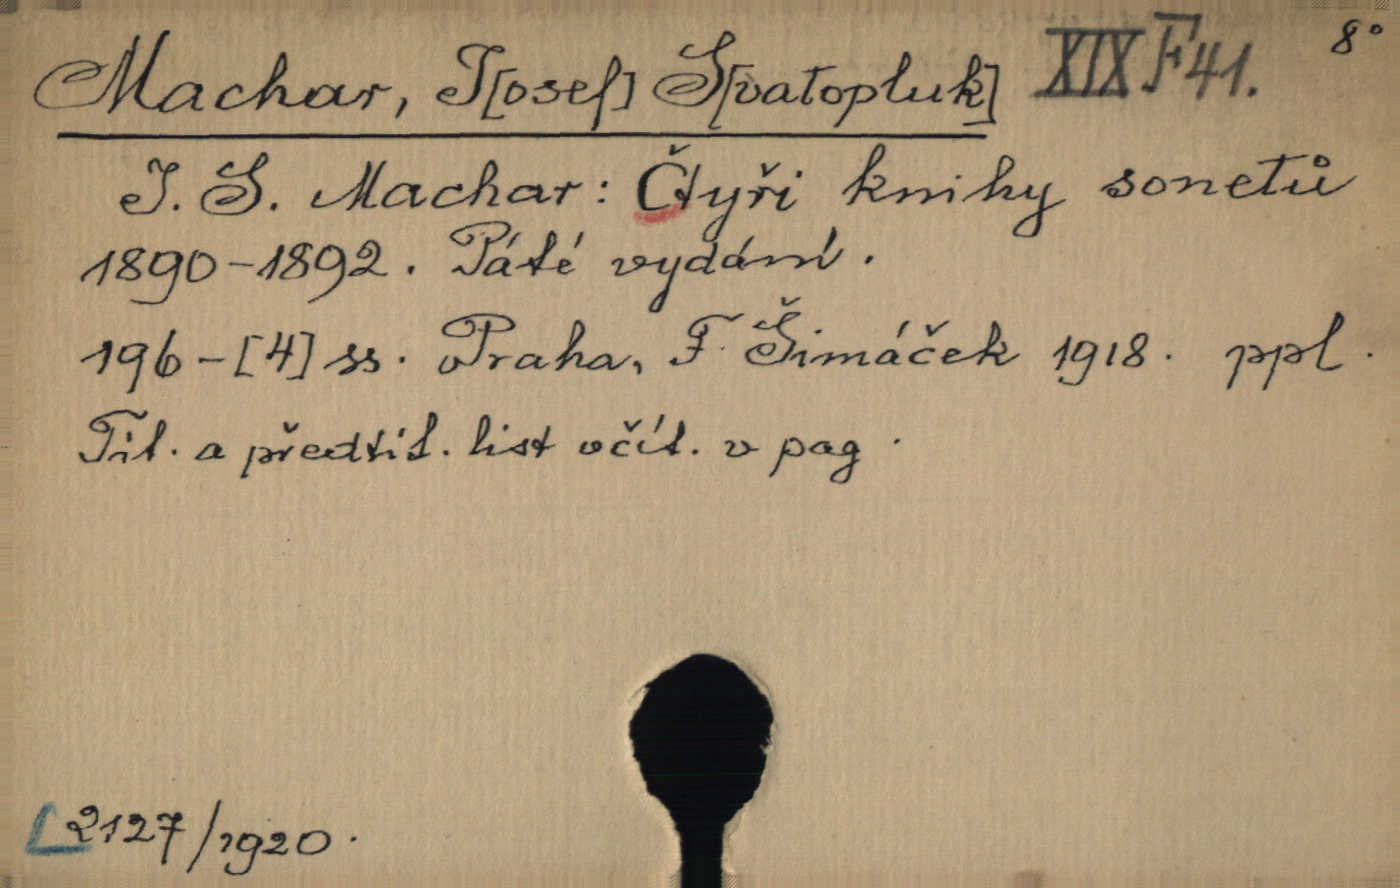 Machar, J[osef] S[vatopluk] XIX F 41. 8°
J. S. Machar: Čtyři knihy sonetů
1890-1892. Páté vydání.
196-[4] ss. Praha, F. Šimáček 1918. ppl.
Tit. a předtit. list včít. v pag.
2127/1920.